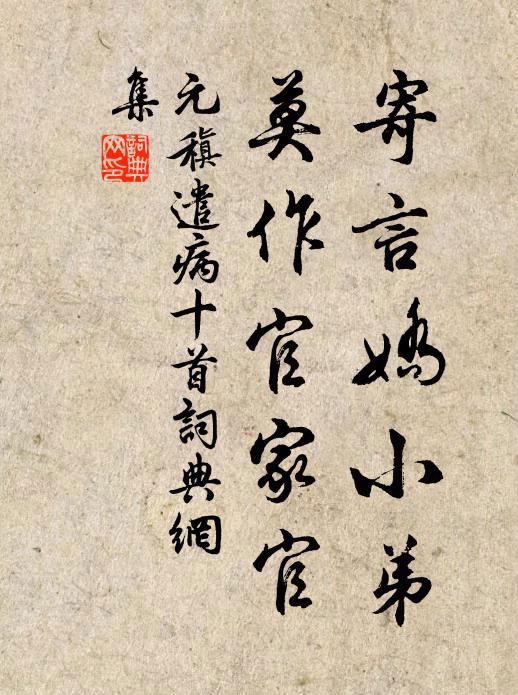 寄言嬌小弟
莫作官家官
元稹遣病十首詞典網
集
詞典
網印